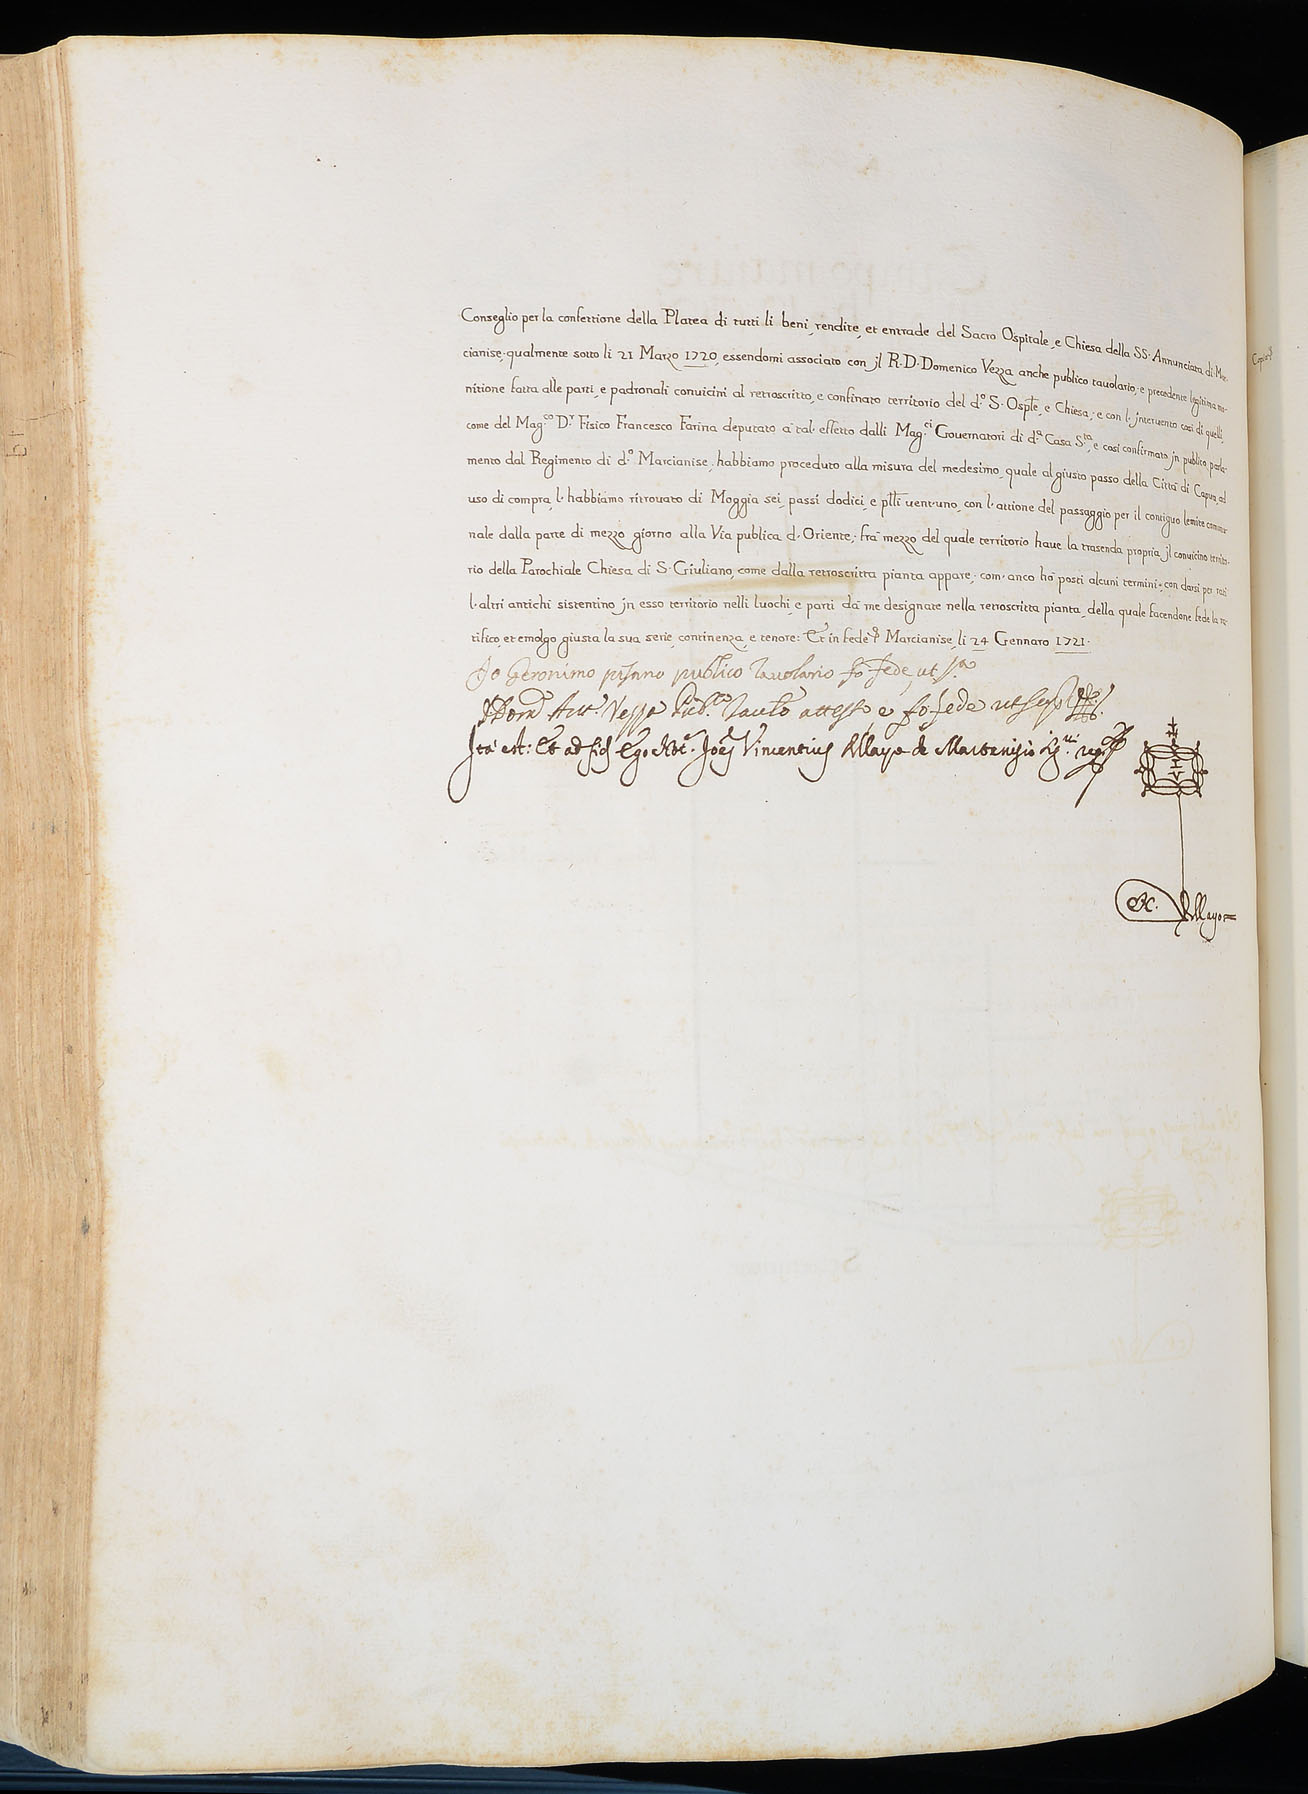 Conseglio per la confettione della Platea di tutti li beni, rendite, et entrade del Sacro Ospitale, e Chiesa della SS. Annunciata di Mar-
cianise, qualmente sotto li 21 Marzo 1720, essendomi associato con jl R. D. Domenico Vezza anche publico tavolario, e precedente legitima mo-
nitione fatta alle parti, e padronali convicini al retroscritto, e confinato territorio del d.º S. Ospłe, e Chiesa, e con l. jntervento così di quelli,
come del Mag.co D.r Fisico Francesco Farina deputato à tal. effetto dalli Mag.ci Governatori di d.ª Casa S.ta, e così confirmato jn publico parla-
mento dal Regimento di d.º Marcianise; habbiamo proceduto alla misura del medesimo, quale al giusto passo della Città di Capua, ad
uso di compra, l. habbiamo ritrovato di Moggia sei, passi dodici, e płti vent'uno, con l. attione del passaggio per il contiguo lemite commu-
nale dalla parte di mezzo giorno alla Via publica d. Oriente; frà mezzo del quale territorio have la trasenda propria jl convicino territo-
rio della Parochiale Chiesa di S. Giuliano, come dalla retroscritta pianta appare; com. anco hò posti alcuni termini, con darsi per rati
l. altri antichi sistentino jn esso territorio nelli luochi, e parti dà me designate nella retroscritta pianta, della quale facendone fede la ra-
tifico, et emolgo giusta la sua serie, continenza, e tenore: Et in fede Marcianise, li 24 Gennaro 1721.
Io Geronimo pisano publico Tavolario fò fede, ut s.ª
Vezza Pub.co Tavło attesto e fò fede ut
Ità est: Et ad fid. Ego Not.s Joēs Vincentius Allayo de Martanisio
Allayo